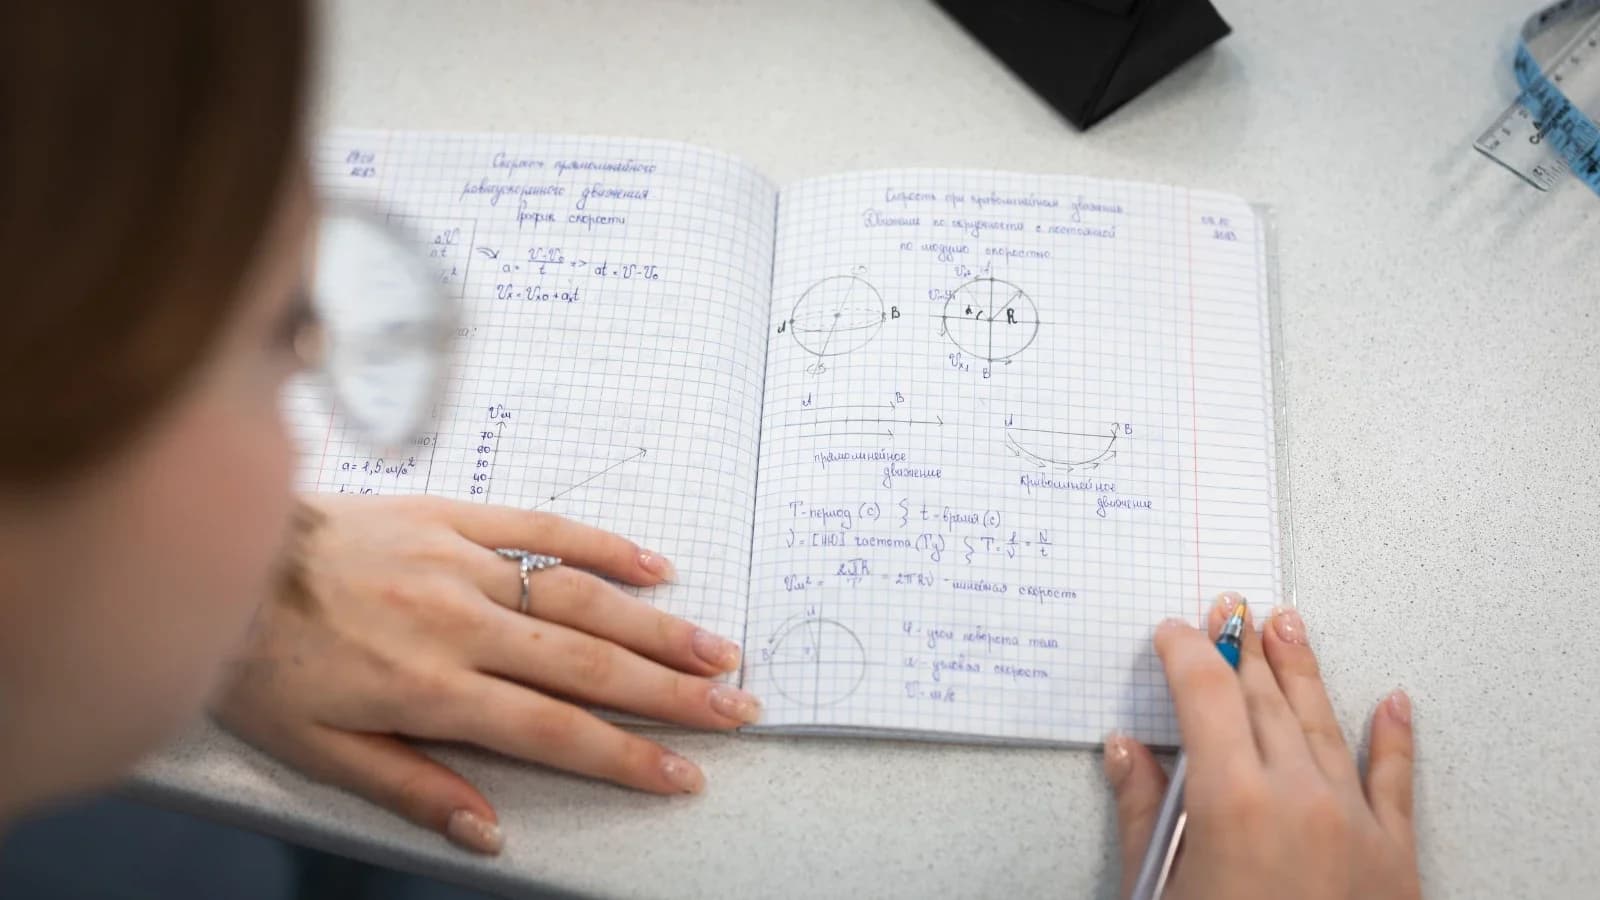 2023
Скорость прямолинейного
равноускоренного движения.
График скорости
a = (V-V₀)/t => at = V-V₀
Vx = Vx₀ + axt
Vм
70
60
50
40
30
a = 1,5 м/с²
Скорость при криволинейном движении
2023
Движение по окружности с постоянной
по модулю скоростью
A
B
R
Vx₁
B
A B
A B
прямолинейное
движение
криволинейное
движение
T - период (с) } t - время (с)
ν = [НЮ] частота (Гц) } T = 1/ν = N/t
= 2πR/T = 2πRν - линейная скорость
A
B
φ - угол поворота тела
угловая скорость
V - м/с